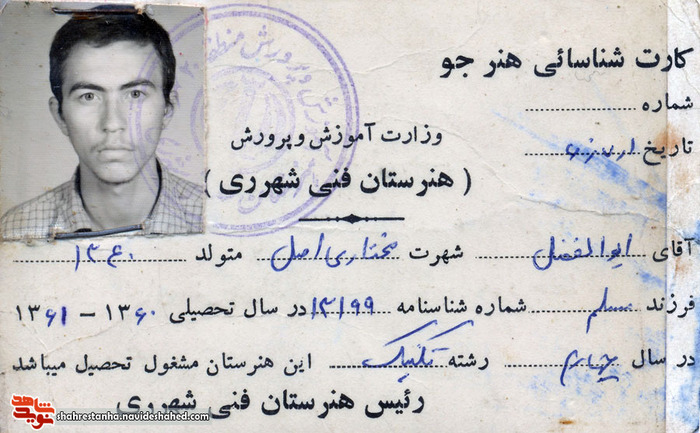 کارت شناسائی هنر جو
شماره
تاریخ
وزارت آموزش و پرورش
( هنرستان فنی شهرری )
آقای ابوالفضل شهرت مختاری اصل متولد ۱۳۴۰
فرزند مسلم شماره شناسنامه ۱۳۱۹۹ در سال تحصیلی ۱۳۶۰ – ۱۳۶۱
در سال چهارم رشته تکنیک این هنرستان مشغول تحصیل میباشد
رئیس هنرستان فنی شهرری
نوید شاهد shahrestanha.navideshahed.com